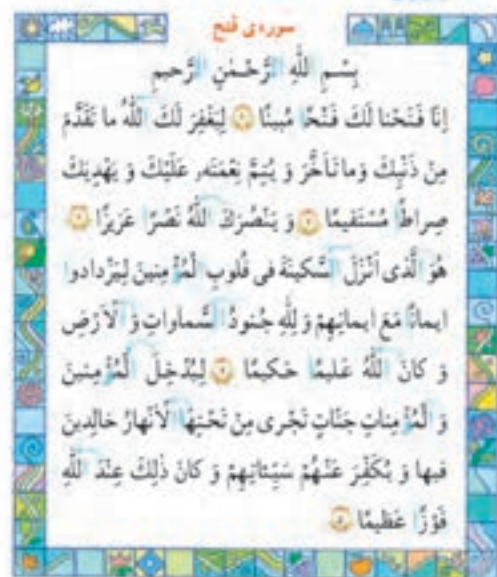 سوره‌ی فتح
بِسْمِ اللّٰهِ الرَّحْمٰنِ الرَّحیمِ
اِنّا فَتَحْنا لَكَ فَتْحًا مُبینًا ١ لِیَغْفِرَ لَكَ اللّٰهُ ما تَقَدَّمَ
مِنْ ذَنْبِكَ وَ ما تَاَخَّرَ وَ یُتِمَّ نِعْمَتَهۥ عَلَیْكَ وَ یَهْدِیَكَ
صِراطًا مُسْتَقیمًا ٢ وَ یَنْصُرَكَ اللّٰهُ نَصْرًا عَزیزًا ٣
هُوَ الَّذی اَنْزَلَ السَّكینَةَ فی قُلوبِ الْمُؤْمِنینَ لِیَزْدادوا
ایمانًا مَعَ ایمانِهِمْ وَ لِلّٰهِ جُنودُ السَّماواتِ وَ الْاَرْضِ
وَ كانَ اللّٰهُ عَلیمًا حَكیمًا ٤ لِیُدْخِلَ الْمُؤْمِنینَ
وَ الْمُؤْمِناتِ جَنّاتٍ تَجْری مِنْ تَحْتِهَا الْاَنْهارُ خالِدینَ
فیها وَ یُكَفِّرَ عَنْهُمْ سَیِّئاتِهِمْ وَ كانَ ذٰلِكَ عِنْدَ اللّٰهِ
فَوْزًا عَظیمًا ٥